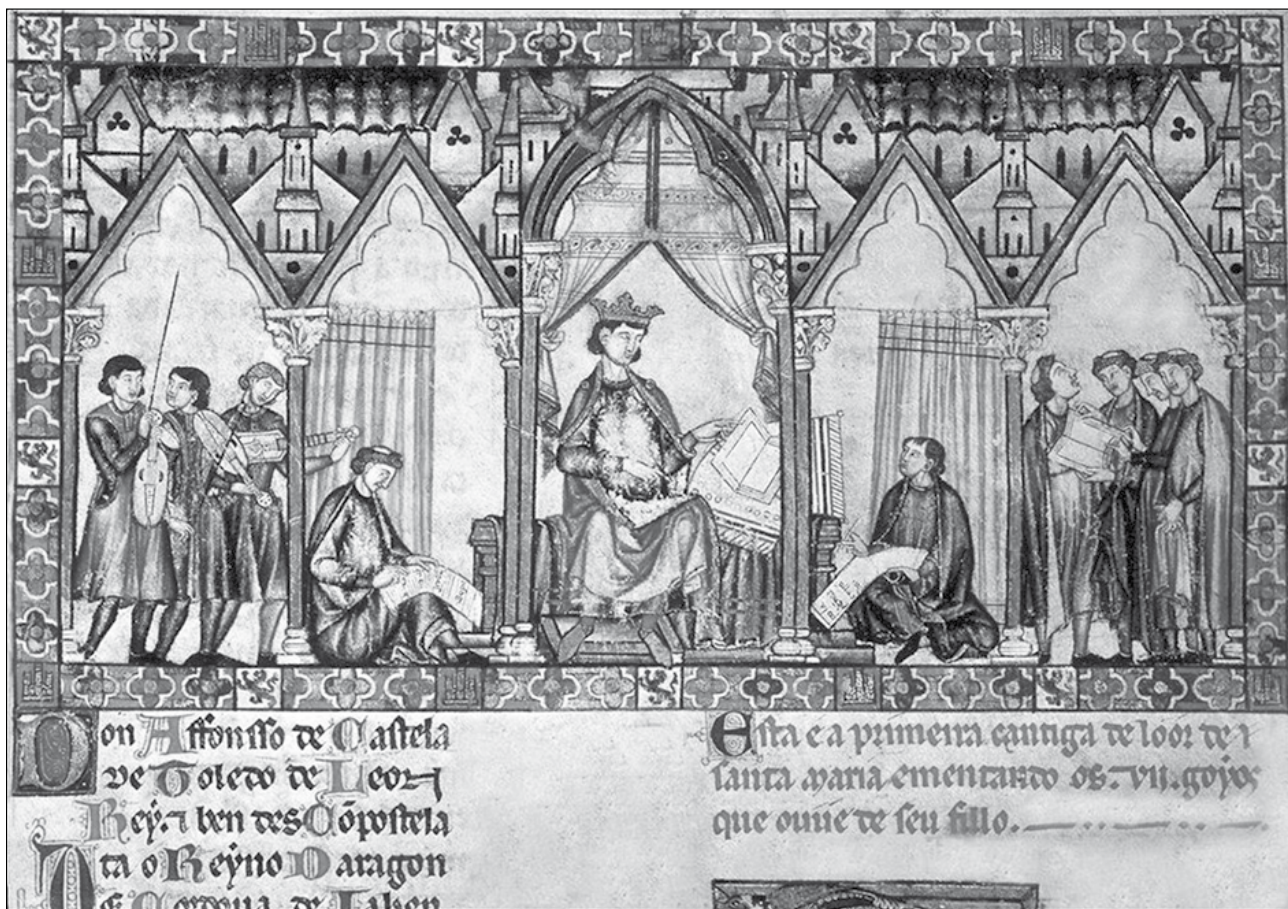 Don Affonsso de Castela
de Toledo de Leon
Rey. ⁊ ben des Cõpostela
ta o Reyno Daragon
Esta e a primeira cantiga de loor de
santa maria ementando os. vii. goyos
que ouue de seu fillo.